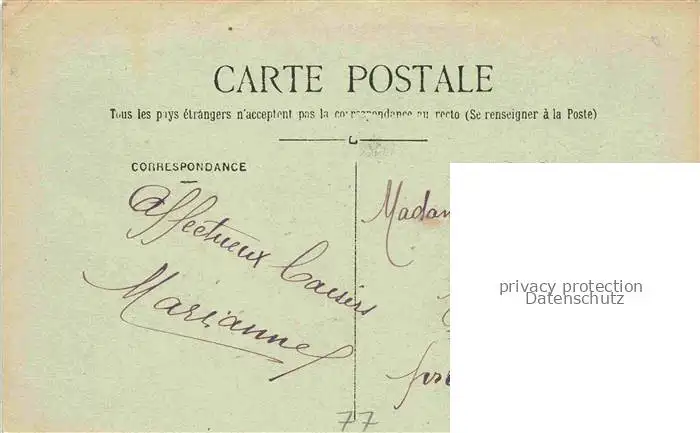 CARTE POSTALE
Tous les pays étrangers n'acceptent pas la correspondance au recto (Se renseigner à la Poste)
CORRESPONDANCE
Affectueux baisers
Marianne
Madam
privacy protection
Datenschutz
77